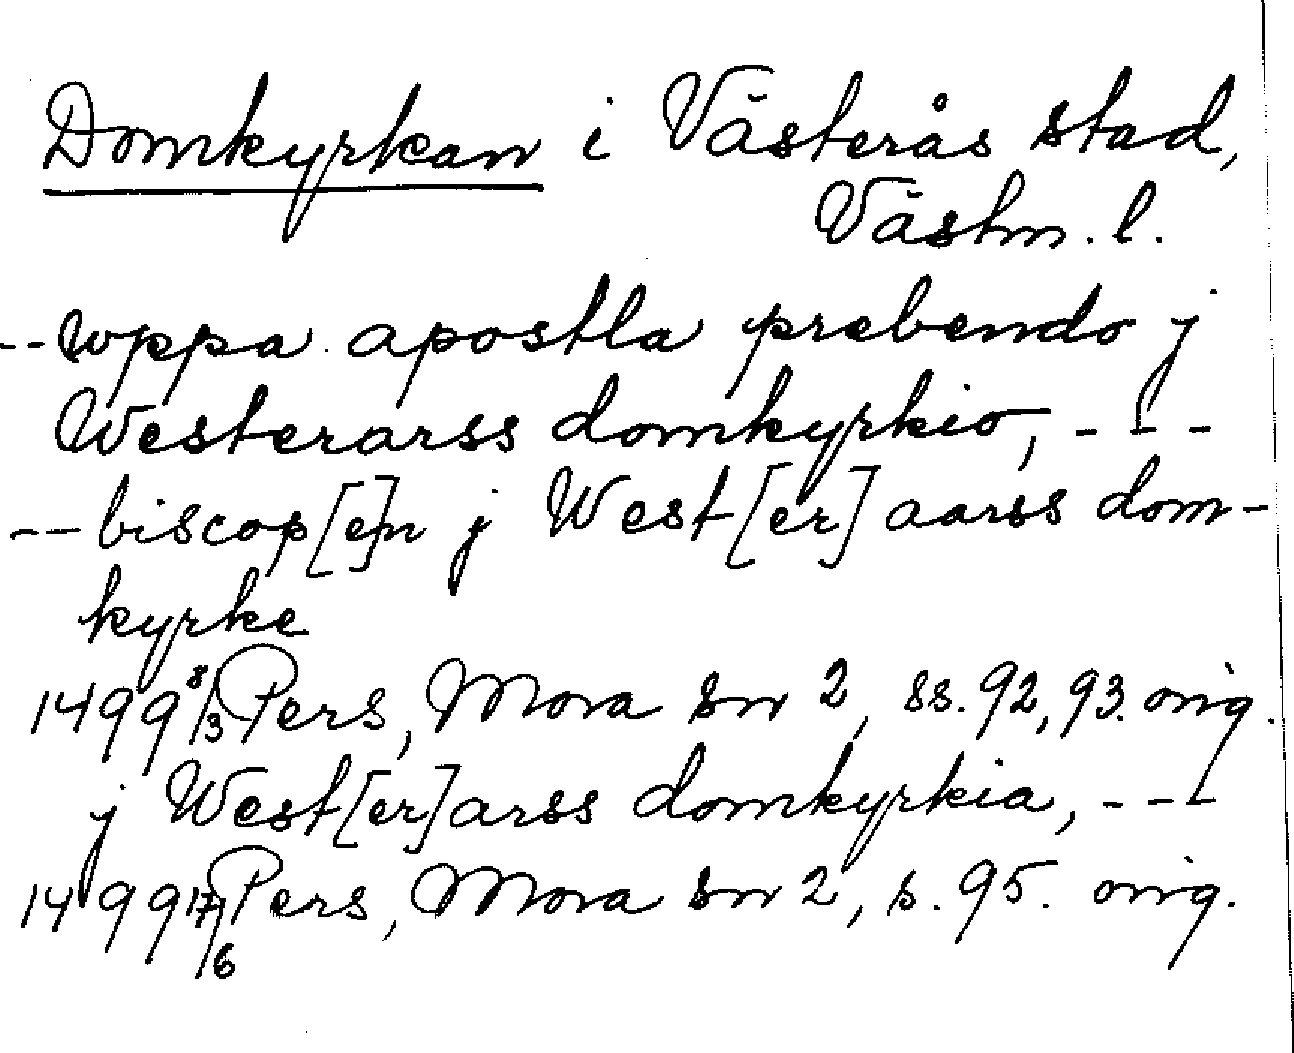 Domkyrkan i Västerås stad,
Västm. l.
-- wppa apostla prebendo j
Westerarss domkyrkio, ---
-- biscop[e]n j West[er]aarss dom-
kyrke
1499 8/3 Pers, Mora sn 2, ss. 92, 93. orig.
j West[er]arss domkyrkia, ---
1499 17/6 Pers, Mora sn 2, s. 95. orig.